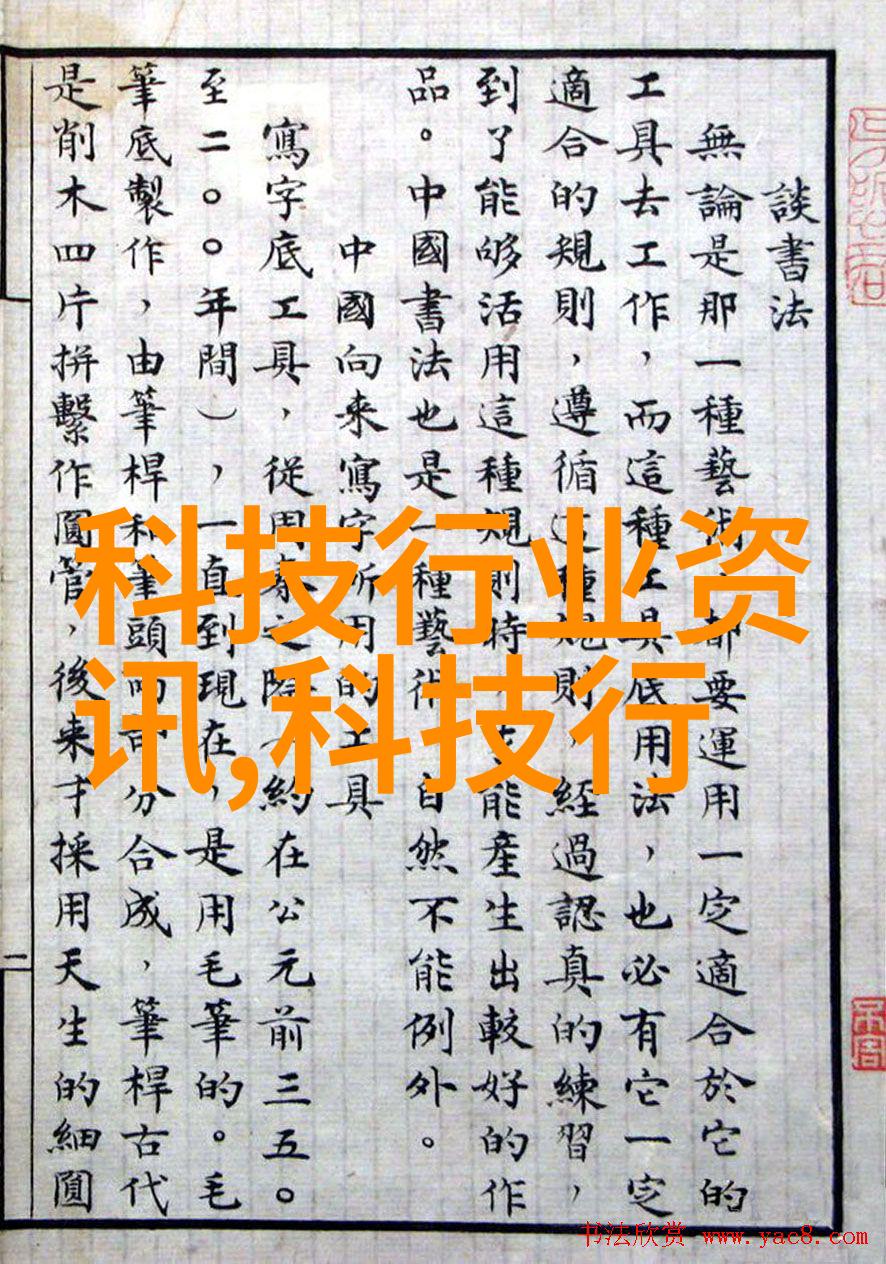 談書法
無論是那一種藝術,都要運用一定適合於它的
工具去工作,而這種工具底用法,也必有它一定
適合的規則,遵循這種規則,經過認真的練習,
到了能够活用這種規則時,才能產生出較好的作
品。中國書法也是一種藝術,自然不能例外。
中國向来寫字所用的工具
寫字底工具,從周秦之際(約在公元前三五〇
至二〇〇年間),一直到現在,是用毛筆的。毛
筆底製作,由筆桿和筆頭兩部分合成,筆桿古代
是削木四片拼繫作圓管,後来才採用天生的細圓
二
科技行业资
讯,科技行
书法欣赏 www.yac8.com